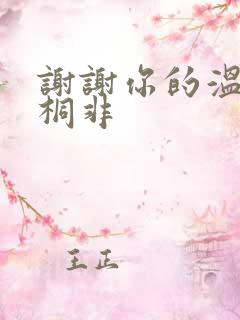 謝謝你的溫
桐非
王正